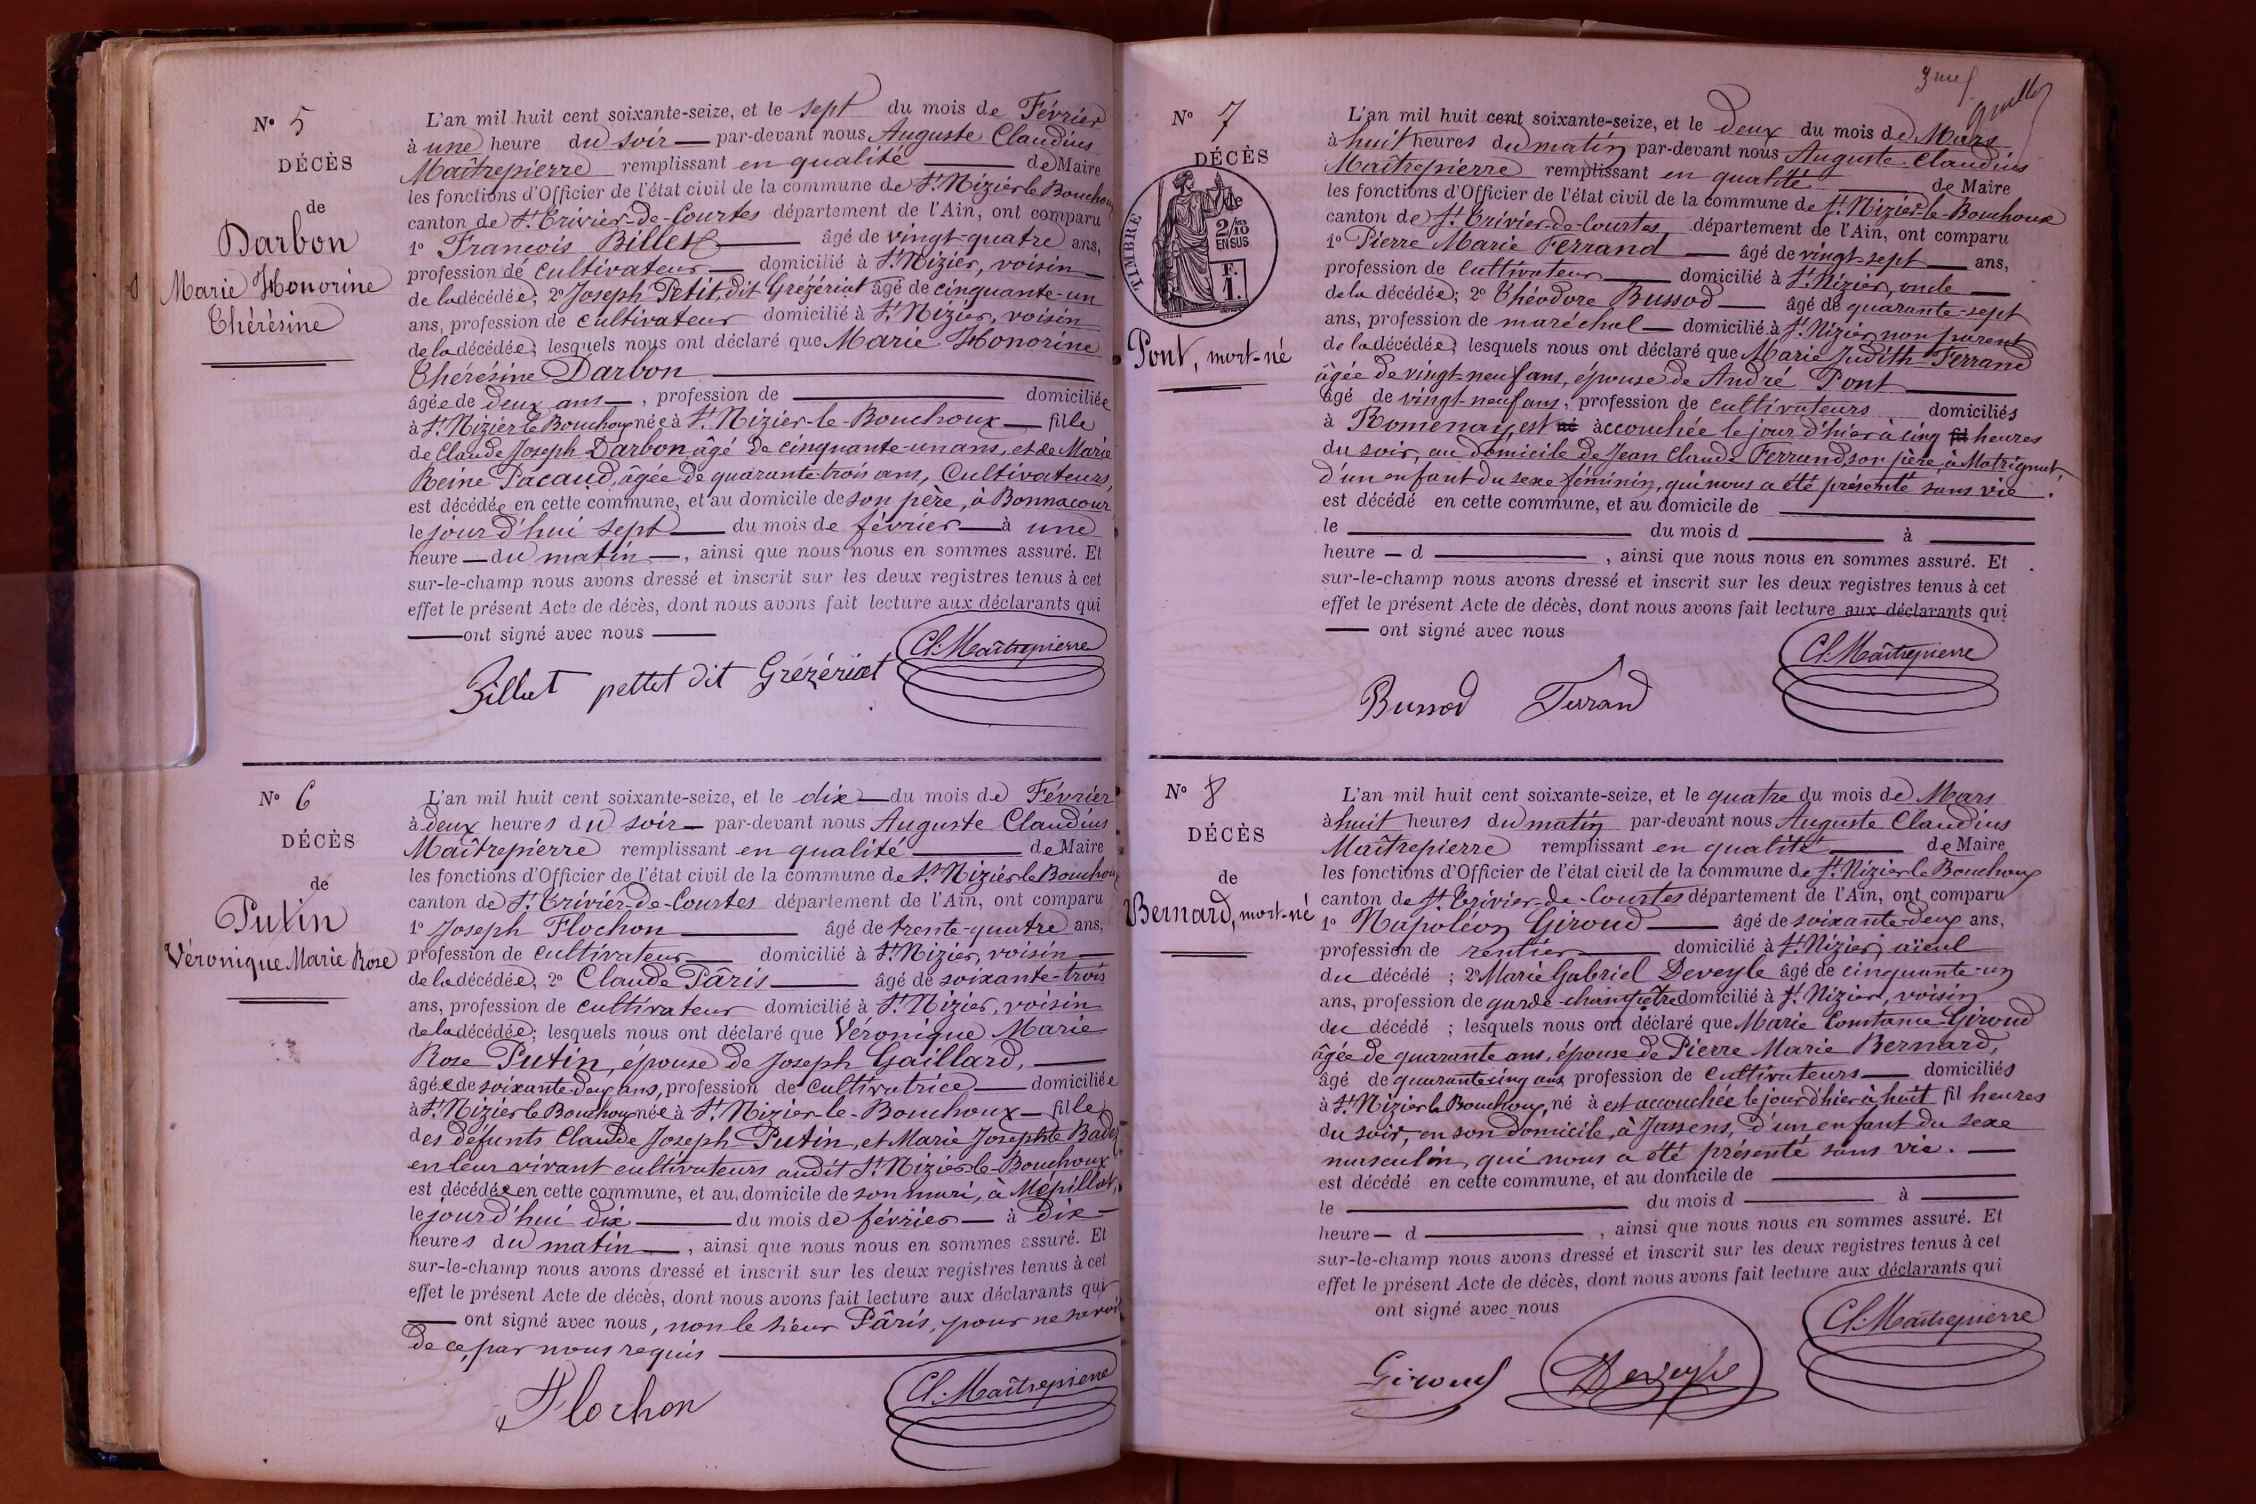 N° 5
DÉCÈS
de
Darbon
Marie Honorine
Thérésine
L'an mil huit cent soixante-seize, et le sept du mois de Février
à une heure du soir — par-devant nous Auguste Claudius
Maîtrepierre remplissant en qualité — de Maire
les fonctions d'Officier de l'état civil de la commune de St Nizier le Bouchoux
canton de St Trivier-de-Courtes département de l'Ain, ont comparu
1° François Billet — âgé de vingt-quatre ans,
profession de cultivateur — domicilié à St Nizier, voisin —
de la décédée; 2° Joseph Petit dit Grézériat âgé de cinquante-un
ans, profession de cultivateur domicilié à St Nizier, voisin
de la décédée; lesquels nous ont déclaré que Marie Honorine
Thérésine Darbon —
âgée de deux ans —, profession de — domiciliée
à St Nizier le Bouchoux née à St Nizier-le-Bouchoux — fille
de Claude Joseph Darbon, âgé de cinquante-un ans, et de Marie
Reine Pacaud, âgée de quarante-trois ans, Cultivateurs,
est décédée en cette commune, et au domicile de son père, à Bonnacour
le jour d'hui sept — du mois de février — à une
heure — du matin —, ainsi que nous nous en sommes assuré. Et
sur-le-champ nous avons dressé et inscrit sur les deux registres tenus à cet
effet le présent Acte de décès, dont nous avons fait lecture aux déclarants qui
— ont signé avec nous —
Cl. Maîtrepierre
Billet pettet dit Grézériat
N° 6
DÉCÈS
de
Putin
Véronique Marie Rose
L'an mil huit cent soixante-seize, et le dix — du mois de Février
à deux heures du soir — par-devant nous Auguste Claudius
Maîtrepierre remplissant en qualité — de Maire
les fonctions d'Officier de l'état civil de la commune de St Nizier le Bouchoux
canton de St Trivier-de-Courtes département de l'Ain, ont comparu
1° Joseph Flochon — âgé de trente-quatre ans,
profession de cultivateur — domicilié à St Nizier, voisin —
de la décédée; 2° Claude Pâris — âgé de soixante-trois
ans, profession de cultivateur domicilié à St Nizier, voisin
de la décédée; lesquels nous ont déclaré que Véronique Marie
Rose Putin, épouse de Joseph Gaillard, —
âgée de soixante-deux ans, profession de cultivatrice — domiciliée
à St Nizier le Bouchoux née à St Nizier-le-Bouchoux — fille
des défunts Claude Joseph Putin, et Marie Josephte
en leur vivant cultivateurs audit St Nizier-le-Bouchoux
est décédée en cette commune, et au domicile de son mari, à Mépillat,
le jour d'hui dix — du mois de février — à dix —
heures du matin —, ainsi que nous nous en sommes assuré. Et
sur-le-champ nous avons dressé et inscrit sur les deux registres tenus à cet
effet le présent Acte de décès, dont nous avons fait lecture aux déclarants qui
— ont signé avec nous, non le sieur Pâris, pour ne savoir
de ce, par nous requis —
Flochon
Cl. Maîtrepierre
N° 7
DÉCÈS
TIMBRE
2/10
EN SUS
F.
1.
Pont, mort-né
L'an mil huit cent soixante-seize, et le deux du mois de Mars
à huit heures du matin par-devant nous Auguste Claudius
Maîtrepierre remplissant en qualité — de Maire
les fonctions d'Officier de l'état civil de la commune de St Nizier-le-Bouchoux
canton de St Trivier-de-Courtes département de l'Ain, ont comparu
1° Pierre Marie Ferrand — âgé de vingt-sept — ans,
profession de Cultivateur — domicilié à St Nizier, oncle —
de la décédée; 2° Théodore Bussod — âgé de quarante-sept
ans, profession de maréchal — domicilié à St Nizier, non parent
de la décédée; lesquels nous ont déclaré que Marie Judith Ferrand
âgée de vingt-neuf ans, épouse de André Pont —
âgé de vingt-neuf ans, profession de cultivateurs domiciliés
à Romenay, est né accouchée le jour d'hier à cinq fil heures
du soir, au domicile de Jean Claude Ferrand, son père, à Matrignat,
d'un enfant du sexe féminin, qui nous a été présenté sans vie.
est décédé en cette commune, et au domicile de —
le — du mois d — à —
heure — d —, ainsi que nous nous en sommes assuré. Et
sur-le-champ nous avons dressé et inscrit sur les deux registres tenus à cet
effet le présent Acte de décès, dont nous avons fait lecture aux déclarants qui
— ont signé avec nous
Cl. Maîtrepierre
Bussod Ferrand
N° 8
DÉCÈS
de
Bernard, mort-né
L'an mil huit cent soixante-seize, et le quatre du mois de Mars
à huit heures du matin par-devant nous Auguste Claudius
Maîtrepierre remplissant en qualité — de Maire
les fonctions d'Officier de l'état civil de la commune de St Nizier le Bouchoux
canton de St Trivier-de-Courtes département de l'Ain, ont comparu
1° Napoléon Giroud — âgé de soixante-deux ans,
profession de rentier — domicilié à St Nizier, aïeul
du décédé ; 2° Marie Gabriel Deveyle âgé de cinquante-un
ans, profession de garde-champêtre domicilié à St Nizier, voisin
du décédé ; lesquels nous ont déclaré que Marie Constance Giroud
âgée de quarante ans, épouse de Pierre Marie Bernard,
âgé de quarante cinq ans profession de cultivateurs — domiciliés
à St Nizier le Bouchoux, né à est accouchée le jour d'hier à huit fil heures
du soir, en son domicile, à Jassens, d'un enfant du sexe
masculin, qui nous a été présenté sans vie. —
est décédé en cette commune, et au domicile de —
le — du mois d — à —
heure — d —, ainsi que nous nous en sommes assuré. Et
sur-le-champ nous avons dressé et inscrit sur les deux registres tenus à cet
effet le présent Acte de décès, dont nous avons fait lecture aux déclarants qui
ont signé avec nous
Cl. Maîtrepierre
Giroud Deveyle